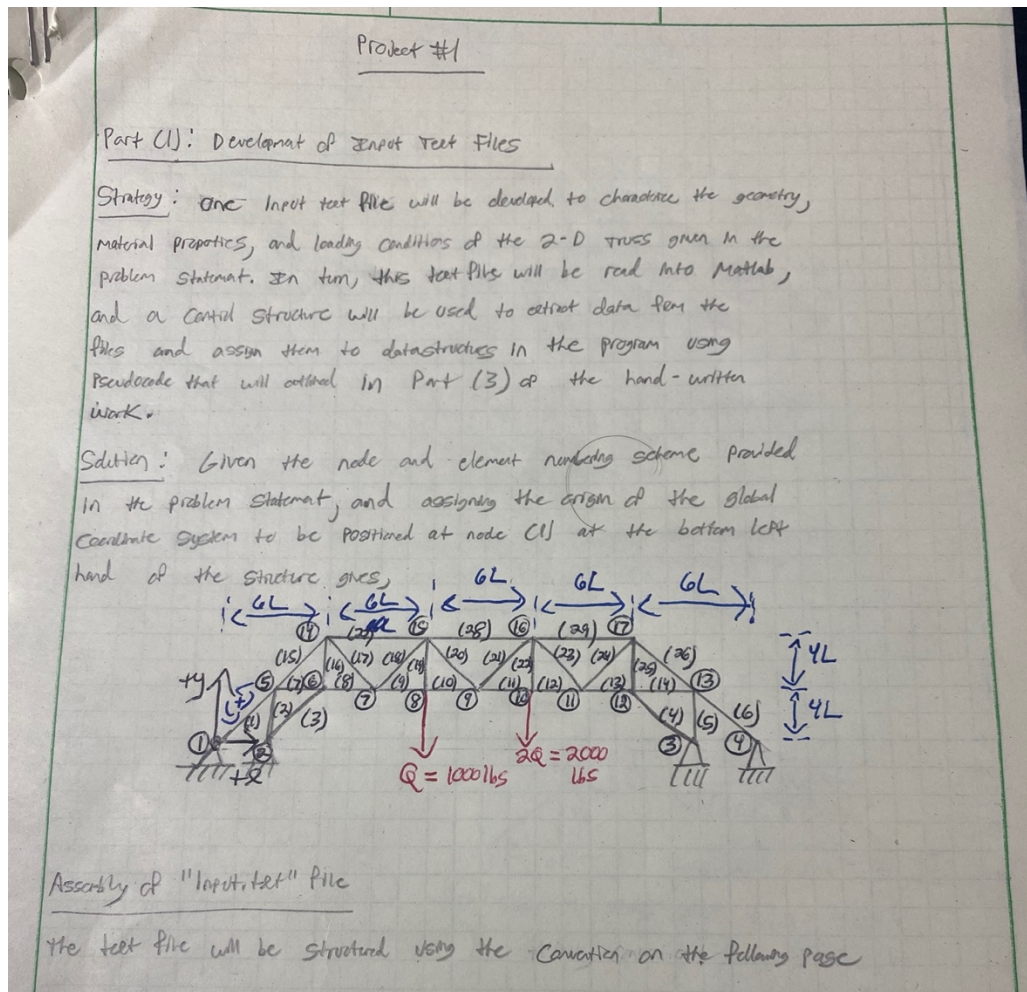 Project #1
Part (1): Development of Input Text Files
Strategy: One input text file will be developed to characterize the geometry,
material properties, and loading conditions of the 2-D truss given in the
problem statement. In turn, this text file will be read into Matlab,
and a control structure will be used to extract data from the
files and assign them to datastructures in the program using
pseudocode that will outlined in Part (3) of the hand-written
work.
Solution: Given the node and element numbering scheme provided
in the problem statement, and assigning the origin of the global
coordinate system to be positioned at node (1) at the bottom left
hand of the structure gives,
6L 6L 6L 6L 6L
14 15 (28) 16 (29) 17
(15) (16) (17) (18) (19) (20) (21) (22) (23) (24) (25) (26) 4L
+y (+) 5 (7) 6 (8) 7 (9) 8 (10) 9 (11) 10 (12) 11 (13) 12 (14) 13
(1) (2) (3) (4) (5) (6) 4L
1 2 3 4
+x Q = 1000 lbs 2Q = 2000
lbs
Assembly of "Input.txt" file
The text file will be structured using the convention on the following page